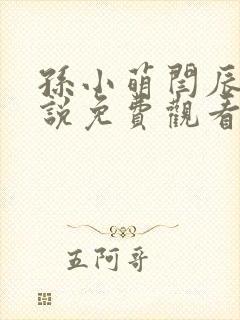 孫小萌閆辰
說免費觀看
五阿哥